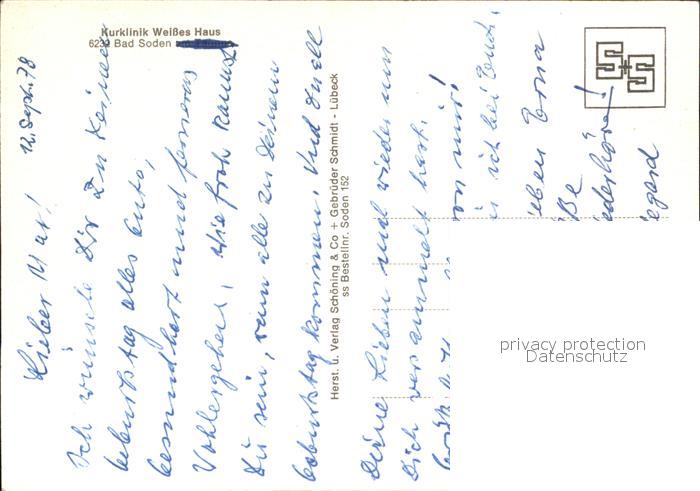 Kurklinik Weißes Haus
6232 Bad Soden
12. Sept. 78
Lieber Max!
Ich wünsche Dir zu Deinem
Geburtstag alles Gute,
Gesundheit und ferneres
Wohlergehen. Wie froh kannst
Du sein, wenn alle zu Deinem
Geburtstag kommen. Und Du all
Deine Lieben mal wieder um
Dich versammelt hast.
von mir!
ich bei Euch.
ieben Erna
ße
iederhören!
egard
Herst. u. Verlag Schöning & Co + Gebrüder Schmidt - Lübeck
ss Bestellnr. Soden 152
privacy protection
Datenschutz